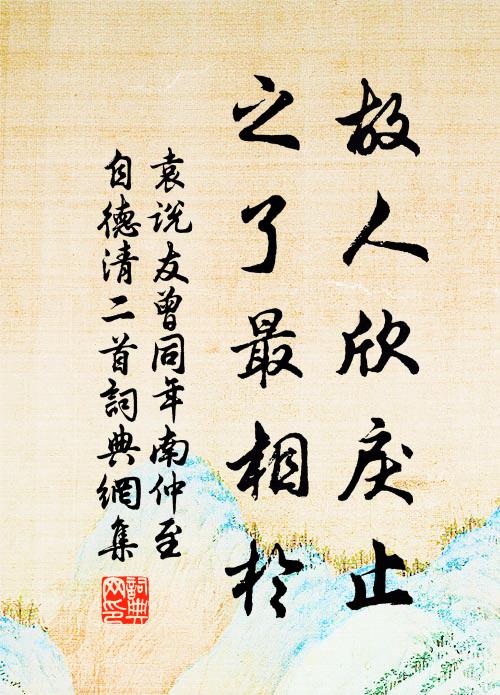 故人欣戾止
之了最相於
袁说友曾同年南仲至
自德清二首詞典網集
詞典
网印